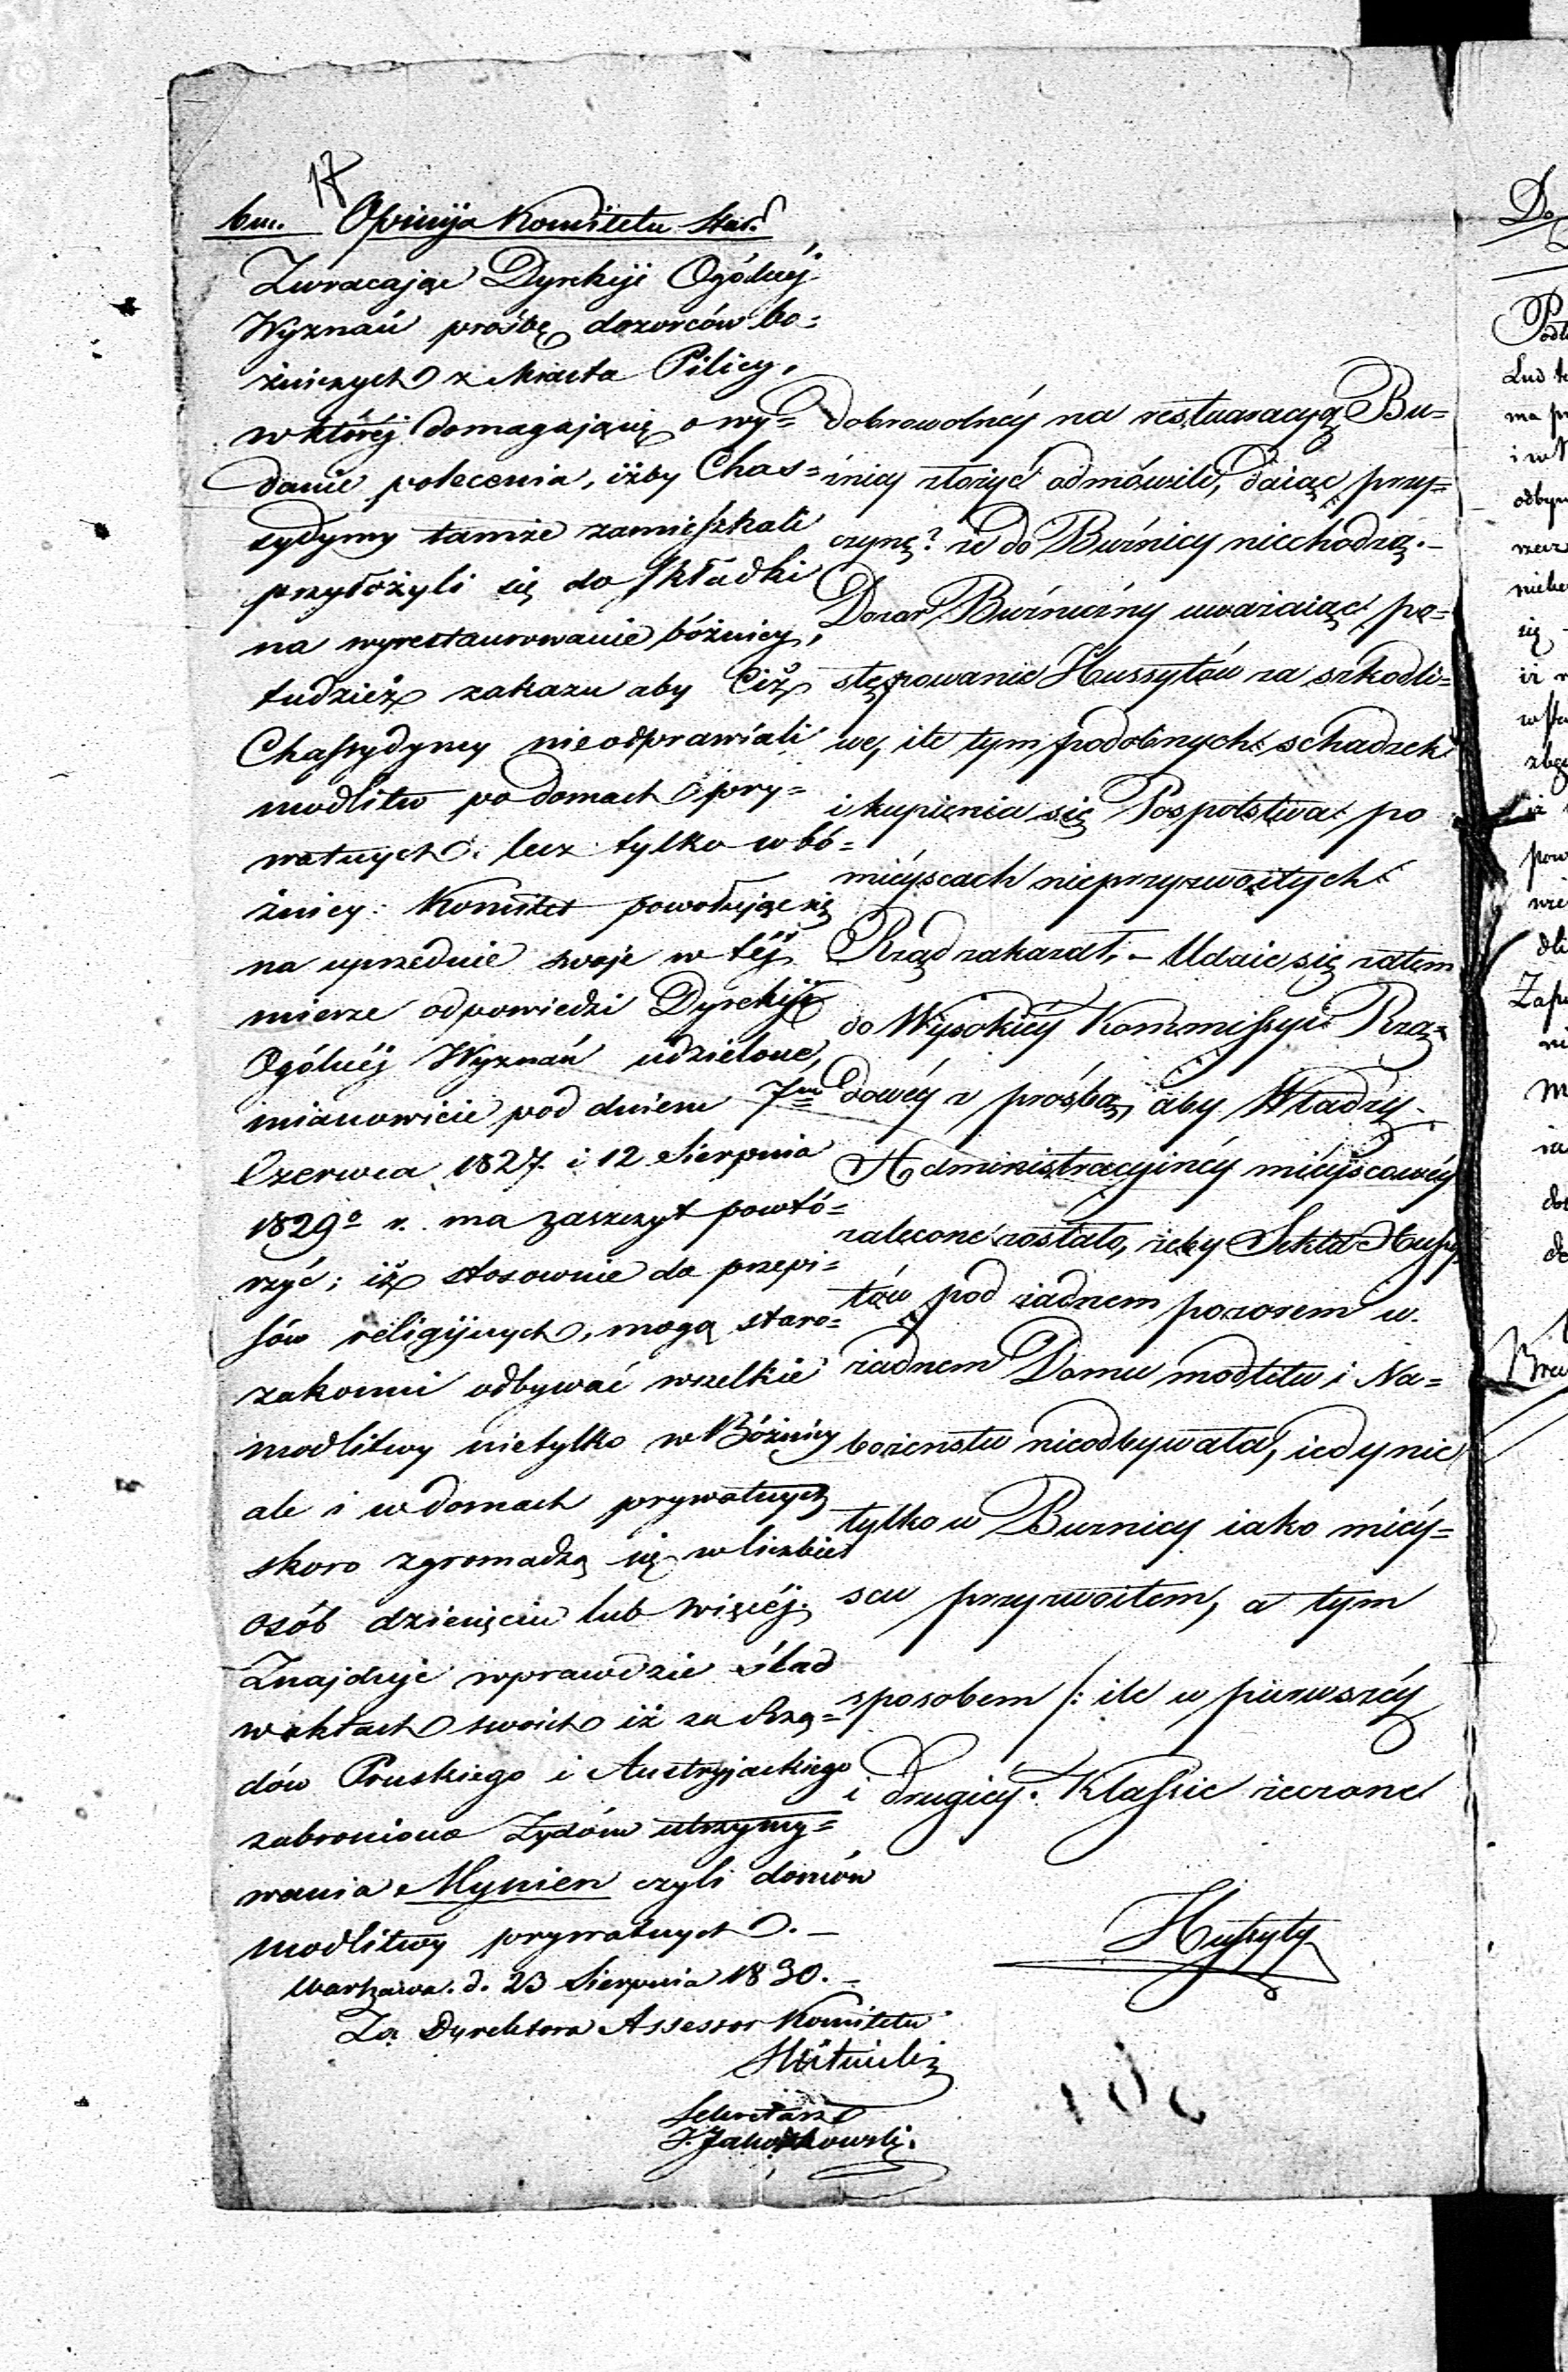 17
Opinija Komitetu Star.
Zwracając Dyrekcji Ogólnéj
Wyznań prośbę dozorców bo=
żniczych z Miasta Pilicy,
w któréj domagają się o wy=
danie polecenia, iżby Chas=
sydymy tamże zamieszkali
przyłożyli się do składki
na wyrestaurowanie bóżnicy,
tudzież zakazu aby Ciż
Chassydymy nieodprawiali
modlitw po domach pry=
watnych lecz tylko w bó=
żnicy: Komitet powołując się
na uprzednie swoje w téj
mierze odpowiedzi Dyrekcji
Ogólnéj Wyznań udzielone,
mianowicie pod dniem 7m
Czerwca 1827. i 12 Sierpnia
1829o r. ma zaszczyt powtó=
rzyć; iż stosownie do przepi=
sów religijnych, mogą staro=
zakonni odbywać wszelkie
modlitwy nietylko w Bóżnicy
ale i w domach prywatnych
skoro zgromadzą się w liczbie
osób dziesięciu lub więcéj.
Znajduje wprawdzie ślad
w aktach swoich iż za Rzą=
dów Pruskiego i Austryjackiego
zabroniono Żydom utrzymy=
wania Mynien czyli domów
modlitwy prywatnych. —
Warszawa. d. 23 Sierpnia 1830. —
Za Dyrektora Assessor Komitetu
Sekretarz
dobrowolnéy na restuaracyą Bu=
żnicy złożyć odmówili, daiąc przy=
czynę? że do Buźnicy niechodzą. —
Dozór Buźniczny uważaiąc po=
stępowanie Hussytów za szkodli=
we, ile tym podobnych schadzek
i kupienia się Pospolstwa po
mieyscach nieprzyzwoitych
Rząd zakazał. — Udaie się zatem
do Wysokiey Kommissyi Rzą=
dowéy z prośbą, aby Władzy
Administracyinéy mieyscowéy
zalecone zostało, żeby Sekta Hussy
tów pod żadnem pozorem w
żadnem Domu modlitw i Na=
bożenstw nieodbywała, iedynie
tylko w Buznicy iako miéy=
scu przyzwoitem, a tym
sposobem /: ile w pierwszéy
i drugiéy Klassie rzeczone
Hussyty
Do
Lud
Zapo